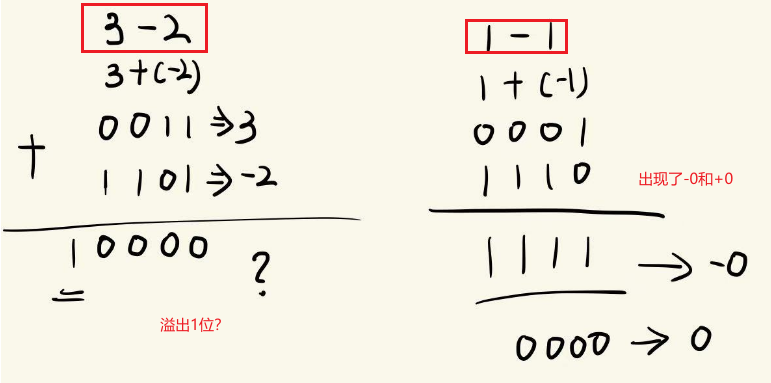 3-2
3+(-2)
0011⇒3
+
1101⇒-2
10000 ?
溢出1位?
1-1
1+(-1)
0001
1110
出现了-0和+0
1111→-0
0000→0